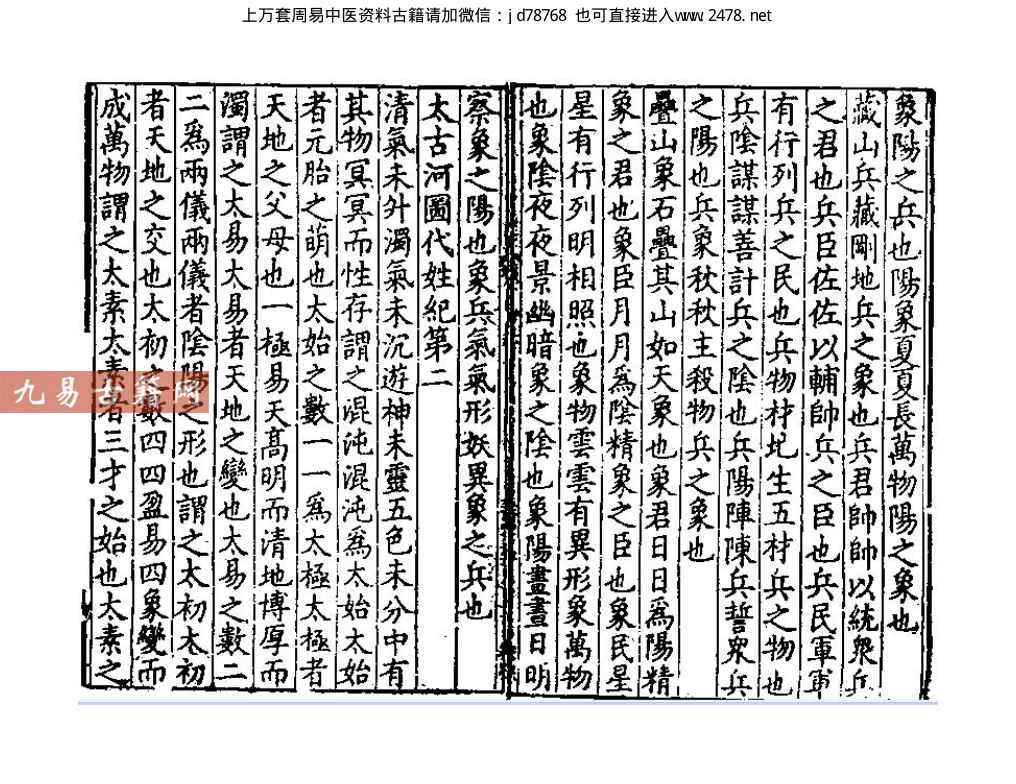 上万套周易中医资料古籍请加微信：jd78768 也可直接进入www.2478.net
象陽之兵也陽象夏夏長萬物陽之象也
藏山兵藏剛地兵之象也兵君帥帥以統衆兵
之君也兵臣佐佐以輔帥兵之臣也兵民軍軍
有行列兵之民也兵物材兵生五材兵之物也
兵陰謀謀善計兵之陰也兵陽陣陳兵誓衆兵
之陽也兵象秋秋主殺物兵之象也
疊山象石疊其山如天象也象君日日爲陽精
象之君也象臣月月爲陰精象之臣也象民星
星有行列明相照也象物雲雲有異形象萬物
也象陰夜夜景幽暗象之陰也象陽晝晝日明
察象之陽也象兵氣氣形妖異象之兵也
太古河圖代姓紀第二
清氣未升濁氣未沉遊神未靈五色未分中有
其物冥冥而性存謂之混沌混沌爲太始太始
者元胎之萌也太始之數一一爲太極太極者
天地之父母也一極易天高明而清地博厚而
濁謂之太易太易者天地之變也太易之數二
二爲兩儀兩儀者陰陽之形也謂之太初太初
者天地之交也太初之數四四盈易四象變而
成萬物謂之太素太素者三才之始也太素之
九易古籍网